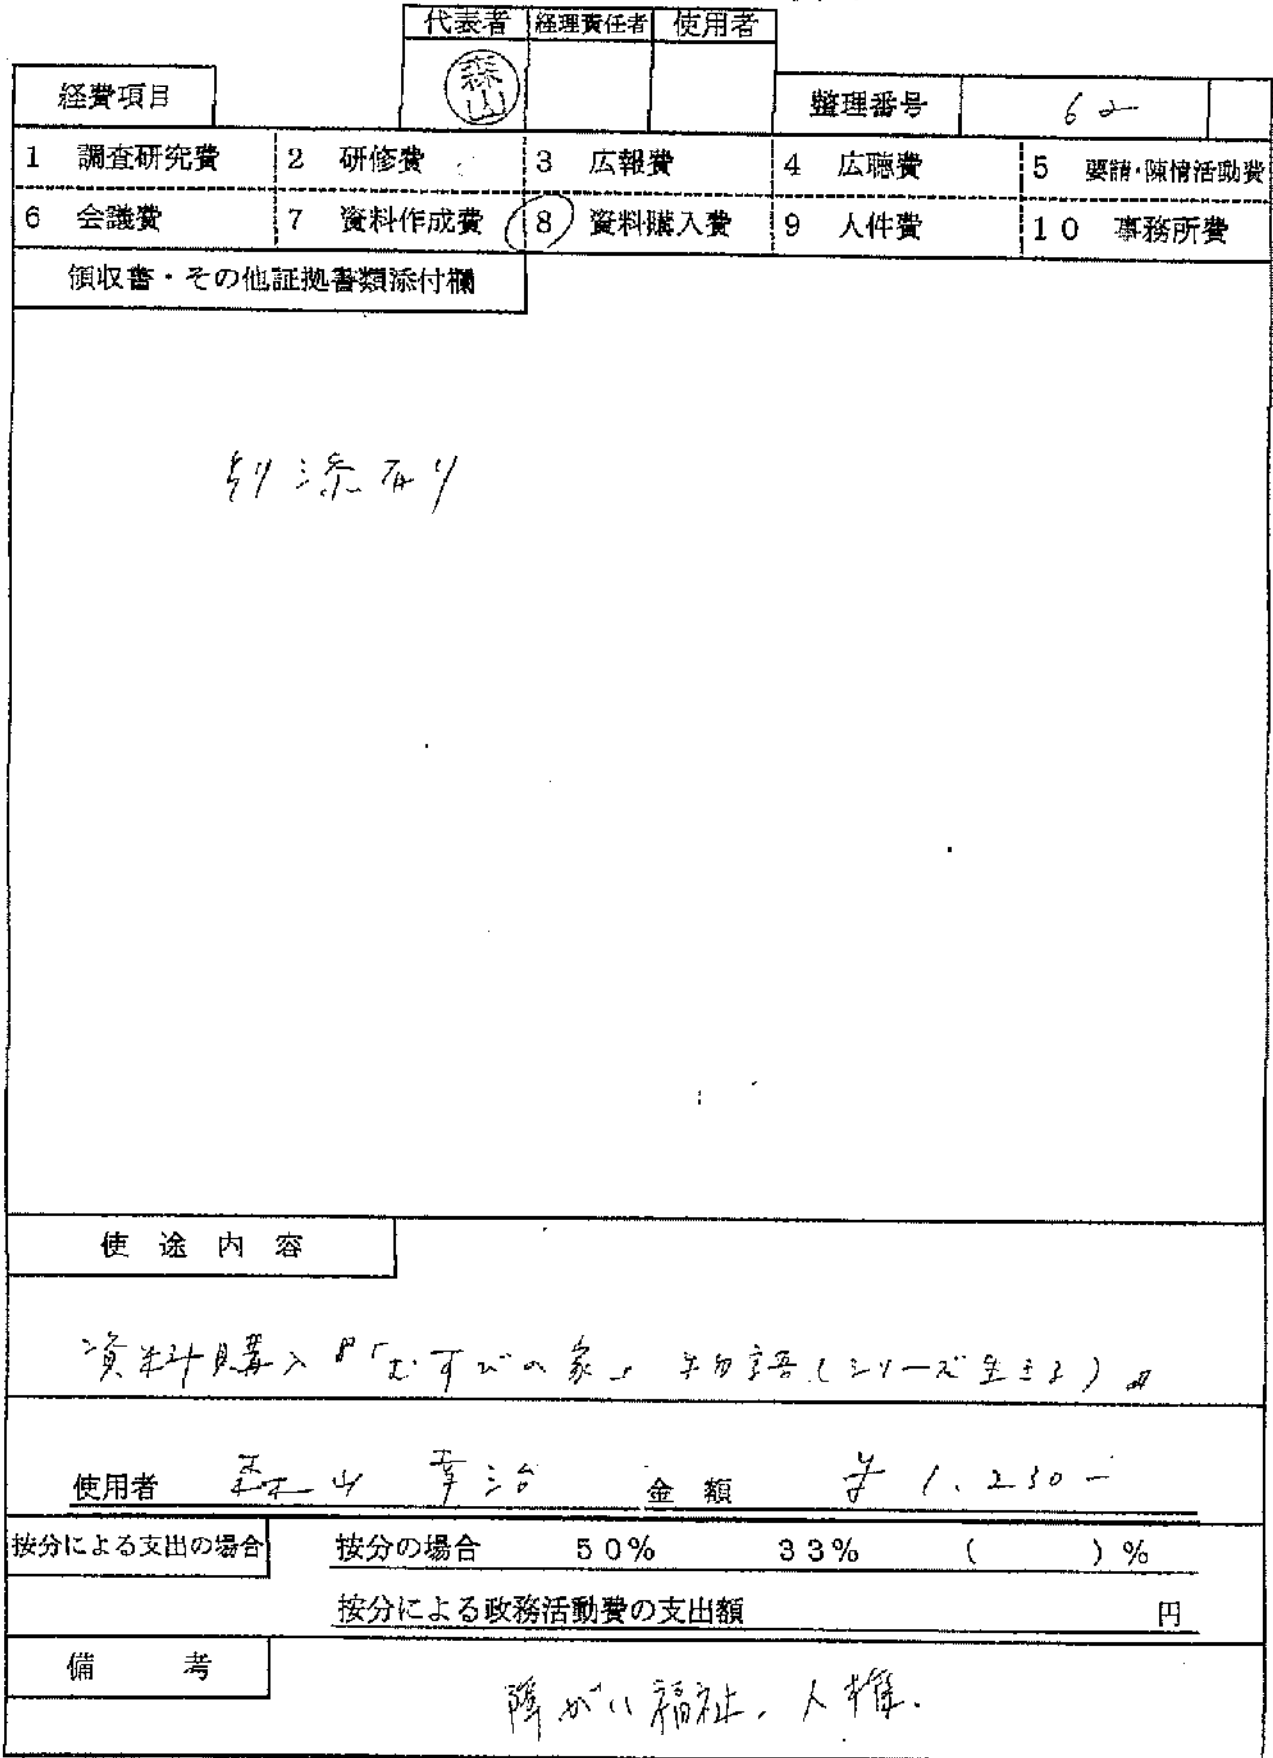 代表者 経理責任者 使用者
森山
経費項目 整理番号 62
1 調査研究費 2 研修費 3 広報費 4 広聴費 5 要請・陳情活動費
6 会議費 7 資料作成費 8 資料購入費 9 人件費 10 事務所費
領収書・その他証拠書類添付欄
別添有り
使途内容
資料購入『「むすびの家」物語(シリーズ生きる)』
使用者 森山 幸治 金額 ¥1,230-
按分による支出の場合 按分の場合 50% 33% ( )%
按分による政務活動費の支出額 円
備考
障がい福祉、人権.